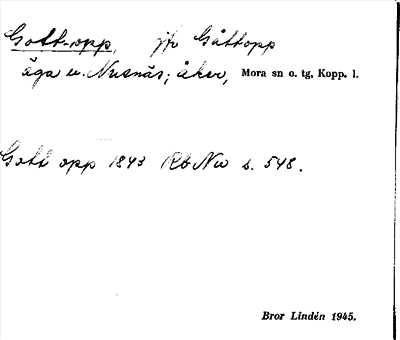 Gott-opp, jfr Gåttopp
äga u. Nusnäs; åker, Mora sn o. tg, Kopp. l.
Gott opp 1843 Rb Nu s. 548.
Bror Lindén 1945.